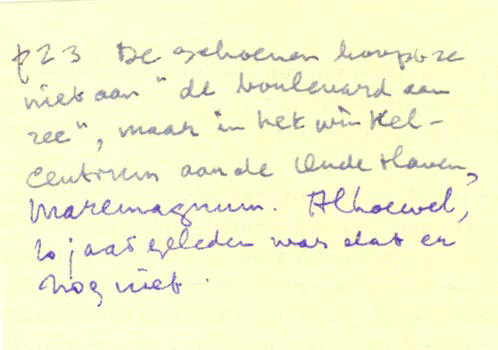 p23 De schoenen koopt ze
niet aan "de boulevard aan
zee", maar in het winkel-
centrum aan de Oude Haven,
Maremagnum. Alhoewel,
10 jaar geleden was dat er
nog niet.